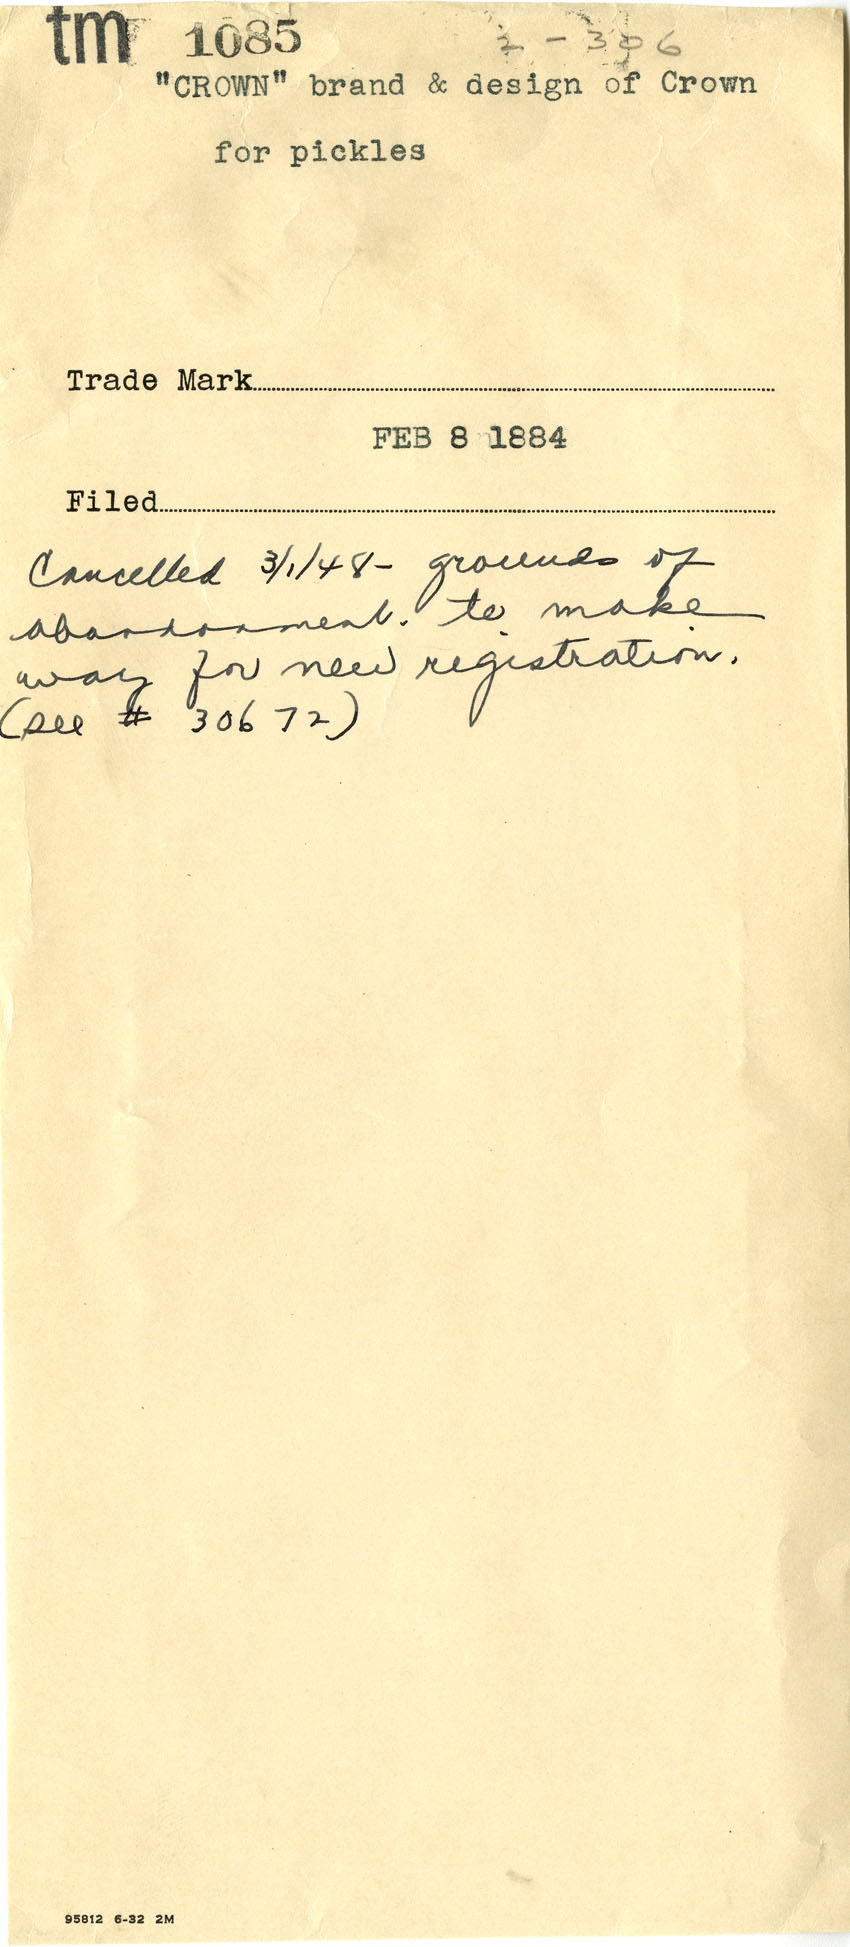 tm 1085 2-306
"CROWN" brand & design of Crown
for pickles
Trade Mark
FEB 8 1884
Filed
Cancelled 3/1/48- grounds of
abandonment. to make
way for new registration.
(see # 30672)
95812 6-32 2M